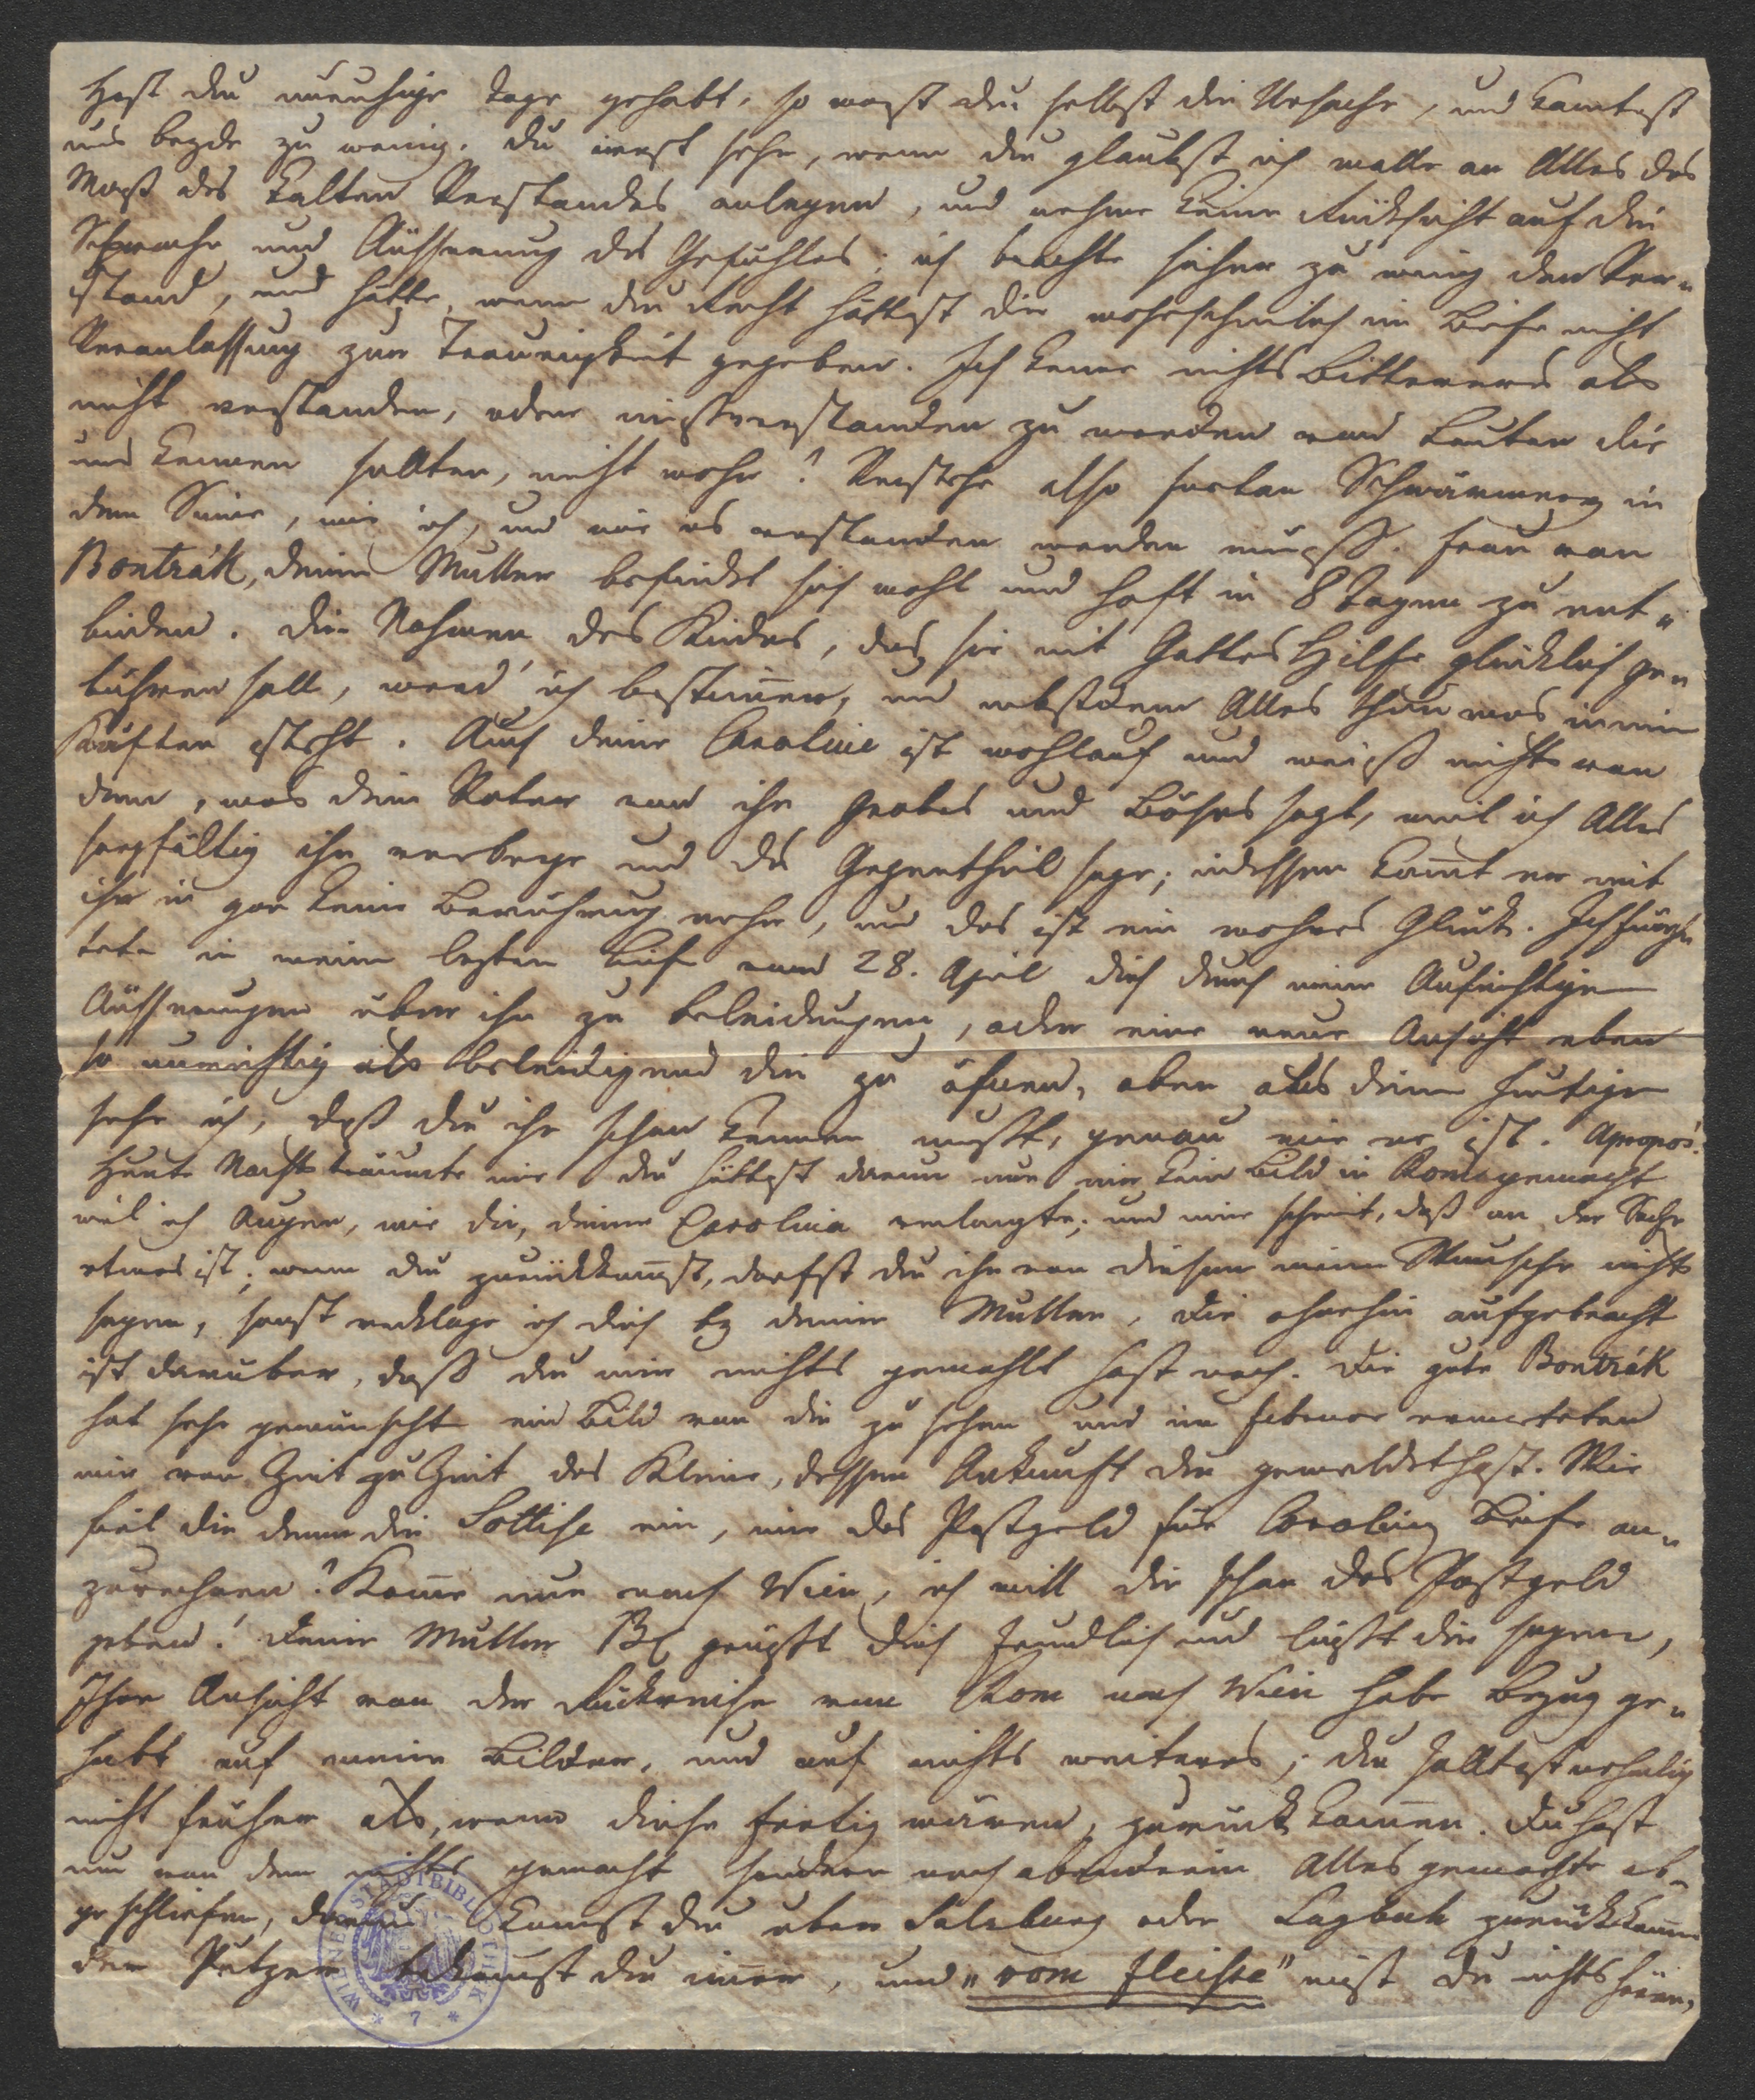 Hast du unruhige Tage gehabt, so warst du selbst die Ursache, und kanntest
uns beyde zu wenig. Du irrest sehr, wenn du glaubst ich wolle an Alles das
Maß des kalten Verstandes anlegen, und nehme keine Rüksicht auf die
Sprache und Äusserung des Gefühles; ich brachte sicher zu wenig den Ver„
stand, und hätte, wenn du Recht hättest dir wahrscheinlich im Briefe nicht
Veranlassung zur Traurigkeit gegeben. Ich kenne nichts Bittereres als
nicht verstanden, oder mißverstanden zu werden von Leuten die
uns kennen sollten, nicht wahr? Verstehe also fortan Schwärmerey in
dem Sinne, wie ich, und wie es verstanden werden muß. Frau von
Bontrák, deine Mutter befindet sich wohl und hoft in 8 Tagen zu ent„
binden. Die Nahmen des Kindes, das sie mit Gottes Hilfe glüklich ge„
bähren soll, werd' ich bestim̅en, und nebstdem Alles thun was in mein
Kräften steht. Auch deine Caroline ist wohlauf und weiß nichts von
dem, was dein Vater von ihr Grobes und Böses sagt, weil ich Alles
sorgfältig ihr verberge und das Gegentheil sage; indessen kom̅t er mit
ihr in gar keine Berührung mehr, und das ist ein wahres Glück. Ich fürch„
tete in meinem lezten Briefe vom 28. April dich durch meine Aufrichtigen
Äusserungen über ihn zu beleidigen, oder eine neue Ansicht eben
so unrichtig als beleidigend dir zu öfnen, aber aus deinem heutigen
sehe ich, daß du ihn schon kennen mußt, genau wie er ist. Apropos!
Heute Nacht träumte mir du hättest darum nur mir kein Bild in Rom gemacht
weil ich Augen, wie die, deiner Carolina verlangte; und mir scheint, daß an der Sache
etwas ist; wenn du zurükkom̅st, darfst du ihr von diesem meinem Wunsche nichts
sagen, sonst verklage ich dich bey deiner Mutter, die ohnehin aufgebracht
ist darüber, daß du mir nichts gemahlt hast noch. Die gute Bontrák
hat sehr gewünscht ein Bild von dir zu sehen und im Februar erwarteten
wir von Zeit zu Zeit das Kleine, dessen Ankunft du gemeldet hast. Wie
fiel dir denn die Sottise ein, mir das Postgeld für Carolines Briefe an„
zurechnen? Kom̅e nur nach Wien, ich will dir schon das Postgeld
geben! Deine Mutter B. grüßt dich freundlich und läßt dir sagen,
Ihre Ansicht von der Rückreise von Rom nach Wien habe Bezug ge„
habt auf meine Bilder, und auf nichts weiteres; du solltest nehmlich
nicht früher als, wenn diese fertig wären, zurück kom̅en. Du hast
nun von dem nichts gemacht sondern noch obendrein Alles gemachte ab„
geschliefen, darum kannst du über Salzburg oder Laybach zurückkom̅en
den Putzer bekom̅st du im̅er, und „vom Fleiße" mußt du nichts hören,
WIENER STADTBIBLIOTHEK
* 7 *